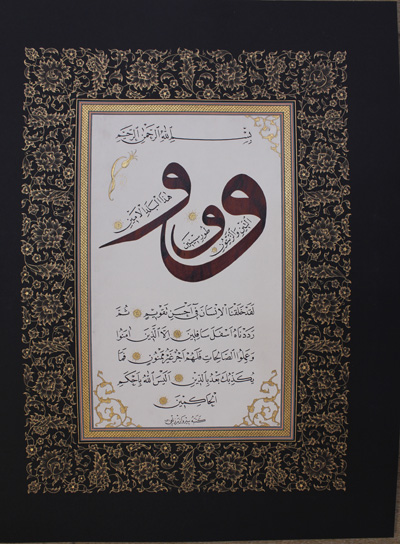 بسم الله الرحمن الرحيم
و
التين والزيتون
و
طور سينين
و
هذا البلد الأمين
لقد خلقنا الإنسان في أحسن تقويم ثم
رددناه أسفل سافلين إلا الذين آمنوا
وعملوا الصالحات فلهم أجر غير ممنون فما
يكذبك بعد بالدين أليس الله بأحكم
الحاكمين
كتبه